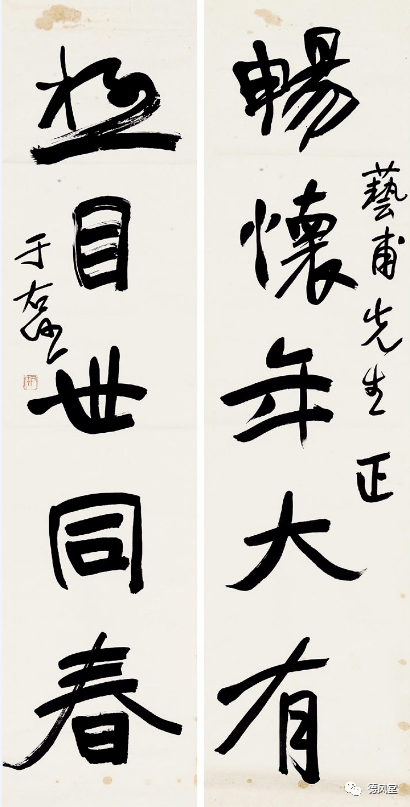 藝甫先生正
暢懷年大有
極目世同春
于右任
德风堂